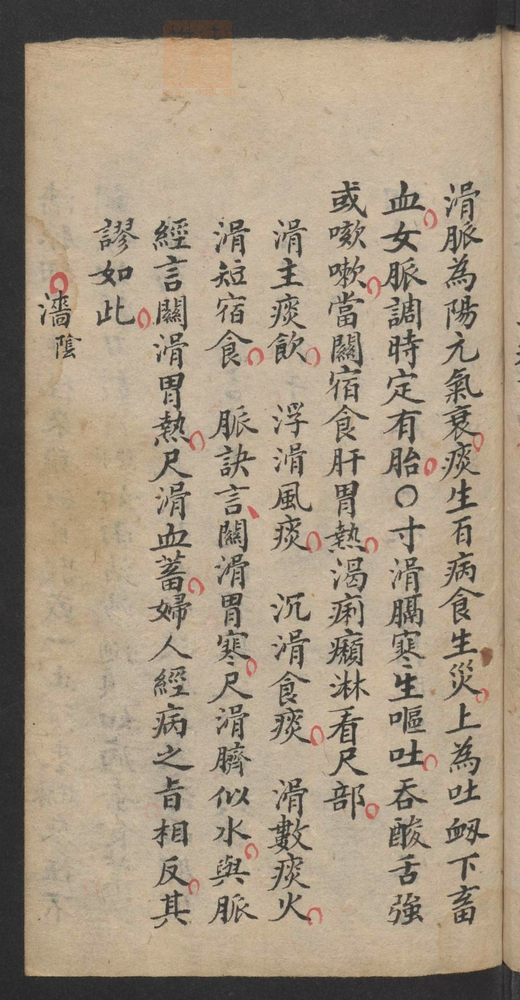 滑脈為陽元氣衰痰生百病食生災上為吐衂下畜
血女脈調時定有胎〇寸滑膈寒生嘔吐吞酸舌強
或咳嗽當關宿食肝胃熱渴痢癩淋看尺部
滑主痰飲 浮滑風痰 沉滑食痰 滑數痰火
滑短宿食 脈訣言關滑胃寒尺滑臍似水與脈
經言關滑胃熱尺滑血蓄婦人經病之旨相反其
謬如此
濇陰